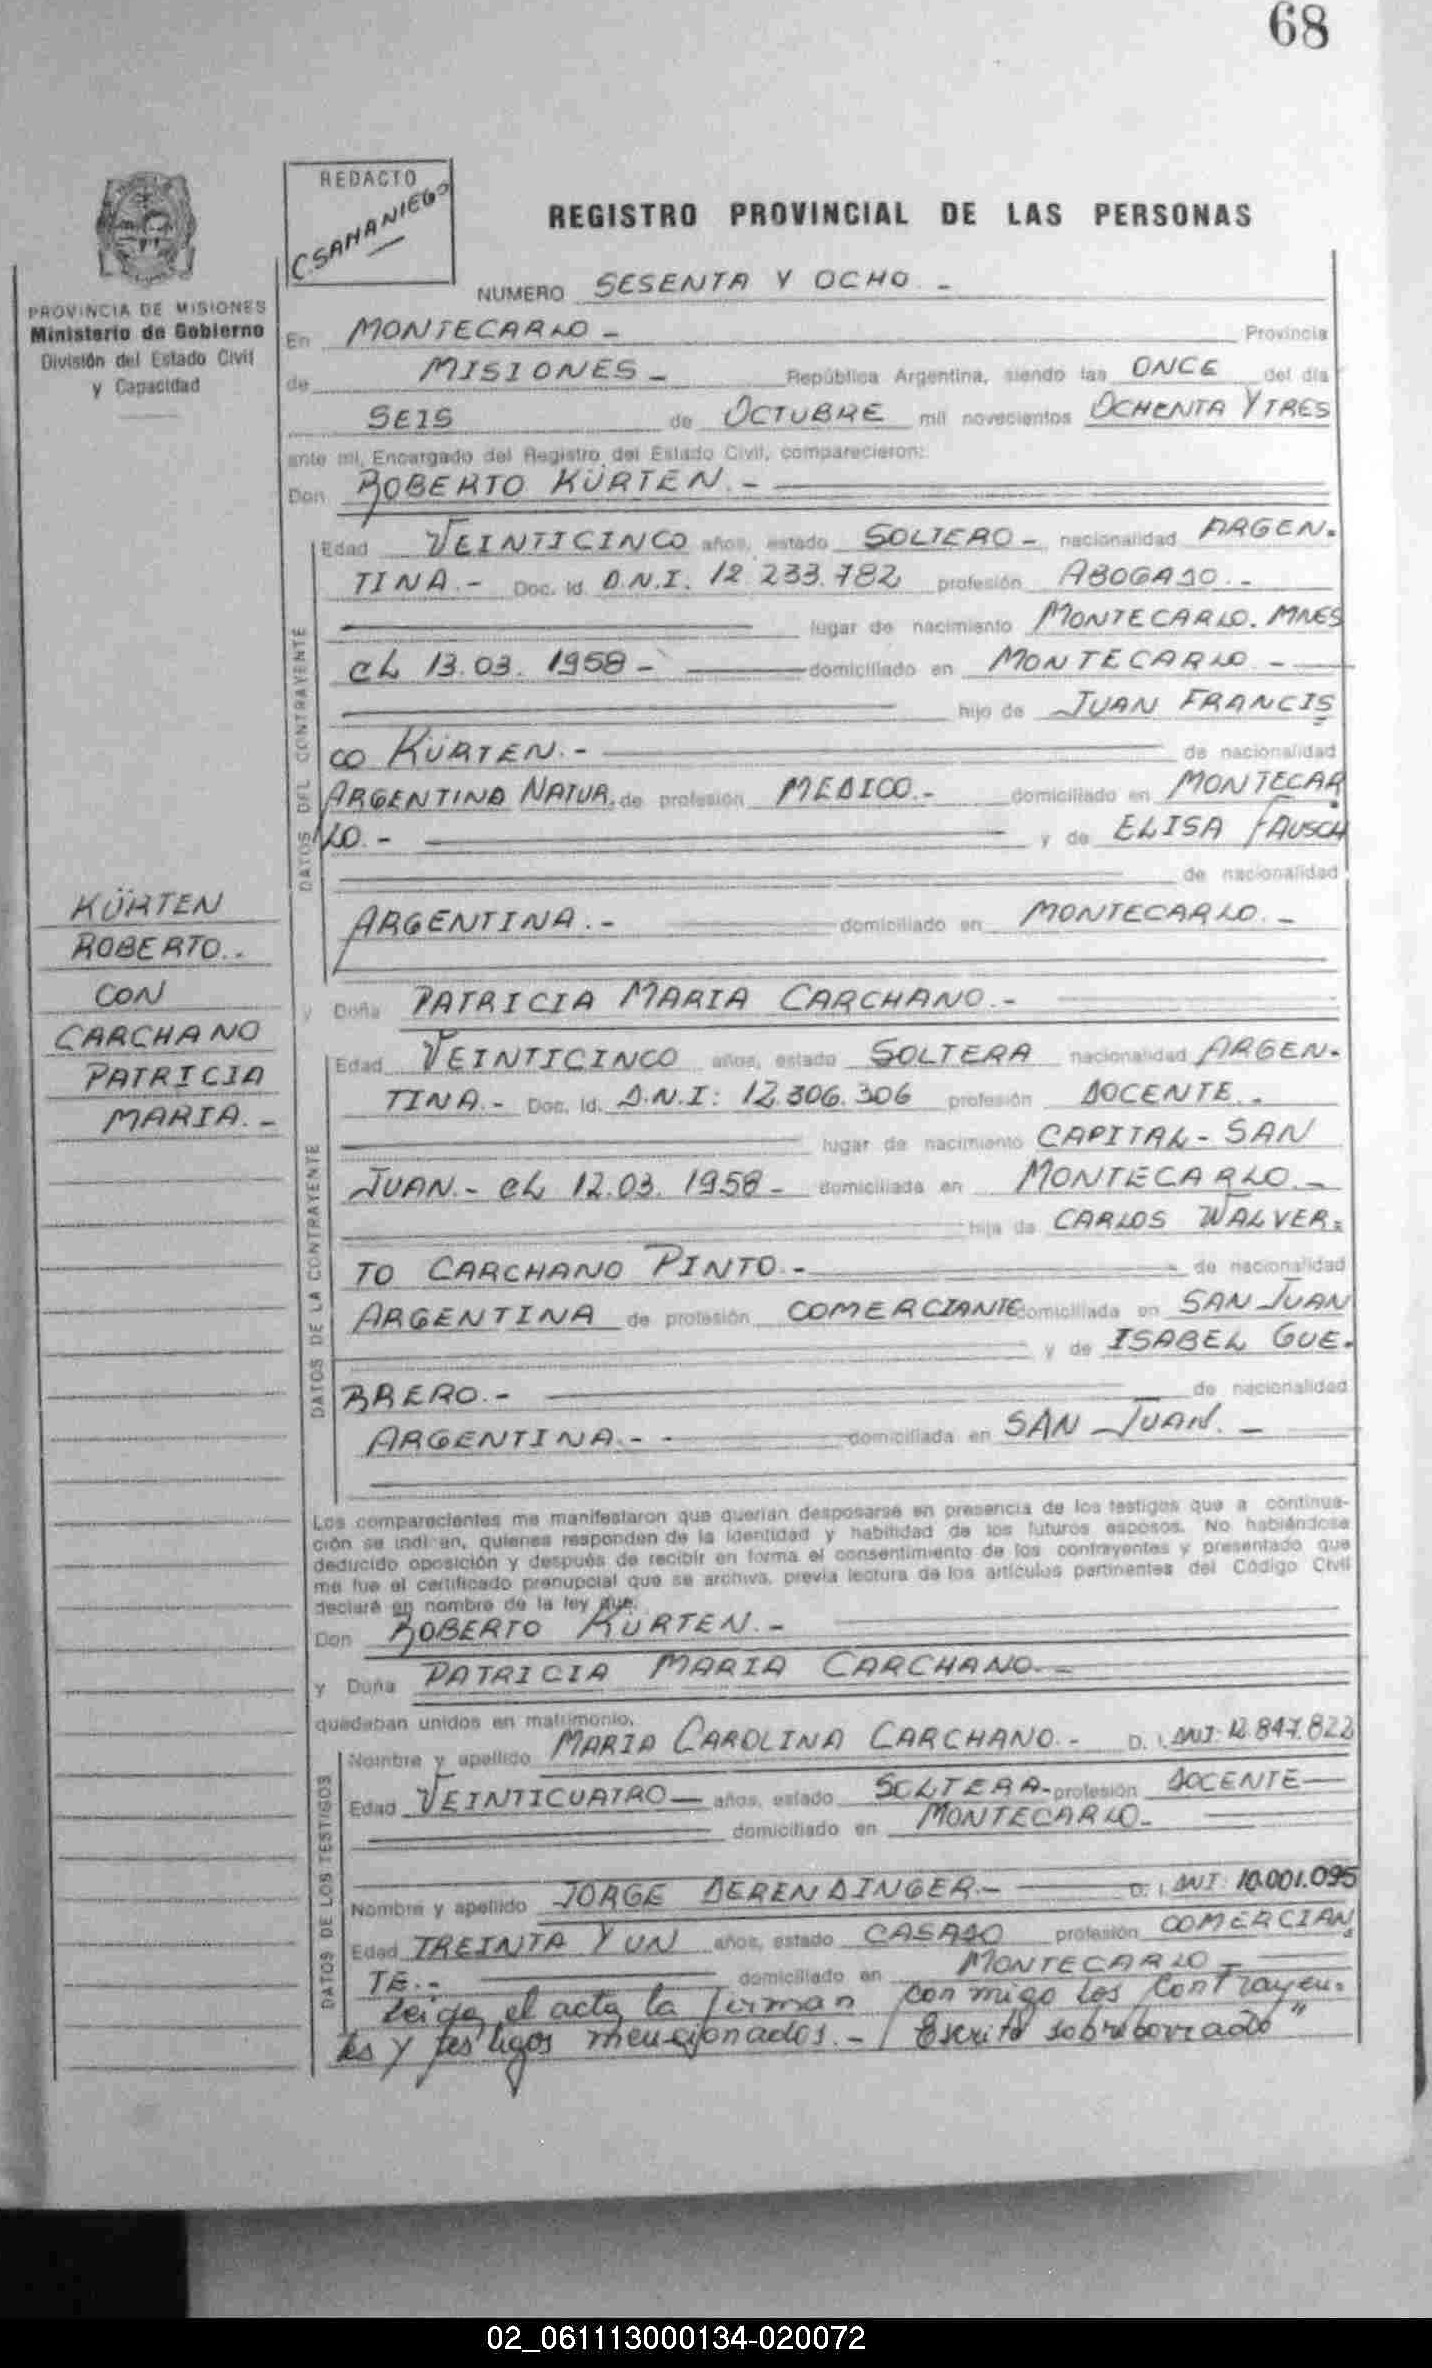 68
REDACTO
CSAMANIEGO
REGISTRO PROVINCIAL DE LAS PERSONAS
PROVINCIA DE MISIONES
Ministerio de Gobierno
División del Estado Civil
y Capacidad
NUMERO SESENTA Y OCHO. -
En MONTECARLO - Provincia
de MISIONES - República Argentina, siendo las ONCE del dia
SEIS de OCTUBRE mil novecientos OCHENTA Y TRES
ante mi, Encargado del Registro del Estado Civil, comparecieron:
Don ROBERTO KÜRTEN. -
DATOS DEL CONTRAYENTE
Edad VEINTICINCO años, estado SOLTERO - nacionalidad ARGEN-
TINA. - Doc. Id. D.N.I. 12.233.782 profesión ABOGADO. -
lugar de nacimiento MONTECARLO. MNES
EL 13.03.1958 - domiciliado en MONTECARLO -
hijo de JUAN FRANCIS
CO KÜRTEN. - de nacionalidad
ARGENTINO NATUR. de profesión MEDICO. - domiciliado en MONTECAR
LO. - y de ELISA FAUSCH
de nacionalidad
ARGENTINA. - domiciliado en MONTECARLO. -
KÜRTEN
ROBERTO. -
CON
CARCHANO
PATRICIA
MARIA. -
y Doña PATRICIA MARIA CARCHANO. -
DATOS DE LA CONTRAYENTE
Edad VEINTICINCO años, estado SOLTERA nacionalidad ARGEN-
TINA. - Doc. Id. D.N.I: 12.306.306 profesión DOCENTE. -
lugar de nacimiento CAPITAL - SAN
JUAN. - EL 12.03.1958 - domiciliada en MONTECARLO. -
hija de CARLOS WALVER-
TO CARCHANO PINTO. - de nacionalidad
ARGENTINA de profesión COMERCIANTE domiciliada en SAN JUAN
y de ISABEL GUE-
RRERO. - de nacionalidad
ARGENTINA. - domiciliada en SAN JUAN. -
Los comparecientes me manifestaron que querían desposarse en presencia de los testigos que a continua-
ción se indican, quienes responden de la identidad y habilidad de los futuros esposos. No habiéndose
deducido oposición y después de recibir en forma el consentimiento de los contrayentes y presentado que
me fue el certificado prenupcial que se archiva, previa lectura de los artículos pertinentes del Código Civil
declaré en nombre de la ley que:
Don ROBERTO KÜRTEN. -
y Doña PATRICIA MARIA CARCHANO. -
quedaban unidos en matrimonio.
DATOS DE LOS TESTIGOS
Nombre y apellido MARIA CAROLINA CARCHANO. - D. I. DNI: 12.847.822
Edad VEINTICUATRO - años, estado SOLTERA - profesión DOCENTE -
domiciliado en MONTECARLO -
Nombre y apellido JORGE DERENDINGER. - D. I. DNI 10.001.095
Edad TREINTA Y UN años, estado CASADO profesión COMERCIAN
TE. - domiciliado en MONTECARLO -
Leída el acta la firman conmigo los contrayen-
tes y testigos mencionados. - Escrito sobreborrado"
02_061113000134-020072